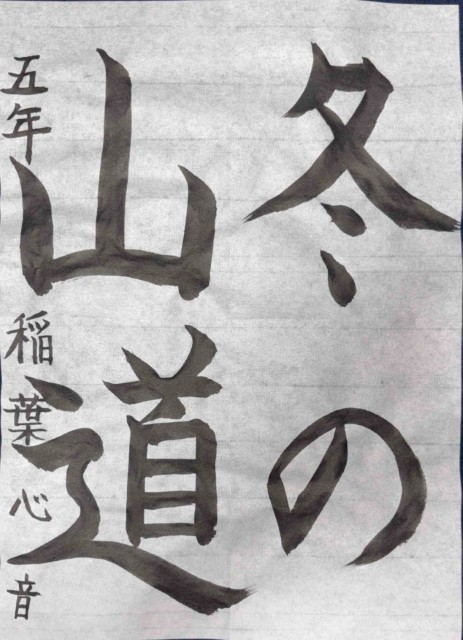 冬の
山道
五年 稲葉心音